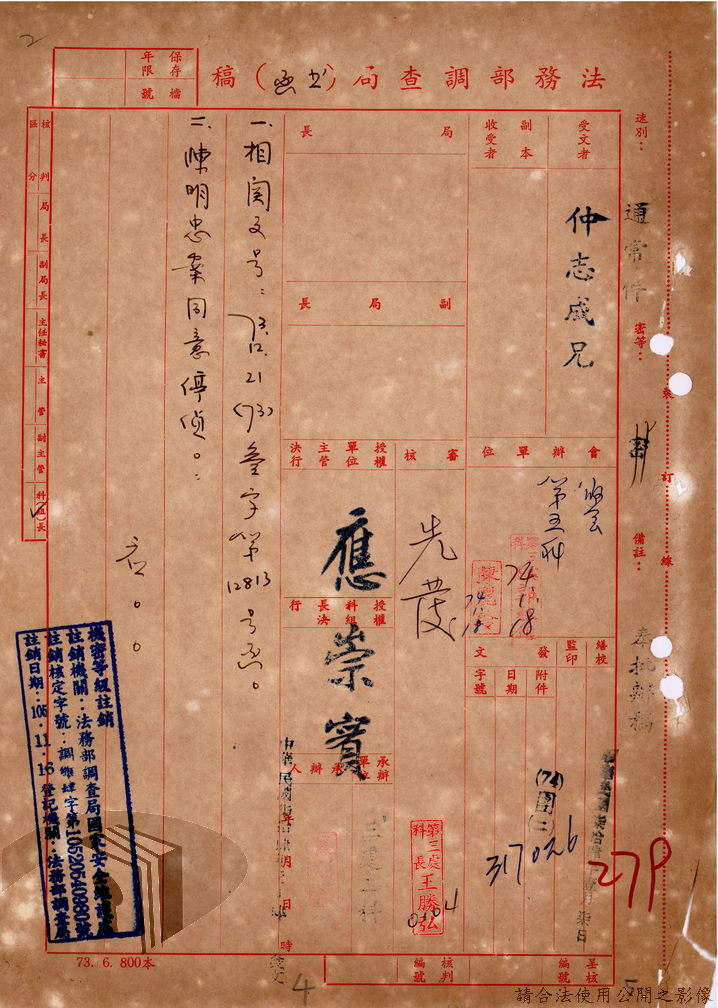 法務部調查局(函)稿
保存年限
檔號
速別：
通常件
密等：
備註：
奉批辦稿
裝
訂
線
受文者
仲志成兄
副本收受者
局長
副局長
會辦單位
審核
授權單位主管決行
敬會
第五科
74.1.18
先發
應崇賓
授權科組長決行
繕校
監印
發文
附件
日期
字號
(74)團(二)
317026
279
承辦單位
承辦人
三處三科
第三處科長王勝弘
0104
中華民國
年
月
日
時
一、相関文号：73.12.21(73)叁字第12813号函。
二、陳明忠案同意停偵。
核判區分
局長
副局長
主任秘書
主管
副主管
科(組)長
機密等級註銷
註銷機關：法務部調查局國家安全維護處
註銷核定字號：調維肆字第10520540880號
註銷日期：105.11.16登記機關：法務部調查局
73. 6. 800本
核判編號
呈核編號
4
2
請合法使用公開之影像